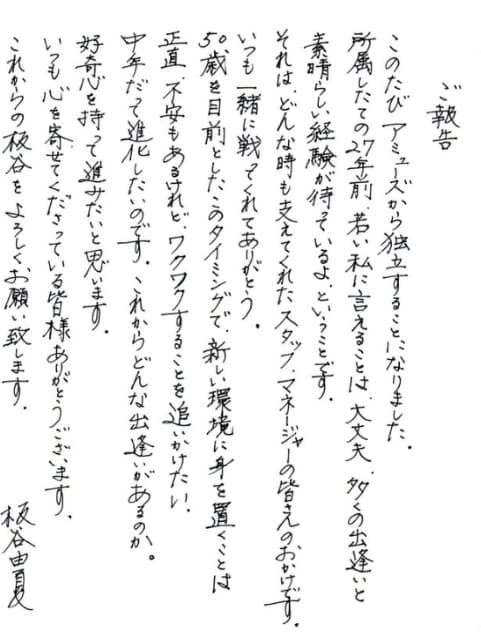 ご報告
このたびアミューズから独立することになりました。
所属したての27年前、若い私に言えることは、大丈夫、多くの出逢いと
素晴らしい経験が待っているよ、ということです。
それは、どんな時も支えてくれたスタッフ、マネージャーの皆さんのおかげです。
いつも一緒に戦ってくれてありがとう。
50歳を目前としたこのタイミングで、新しい環境に身を置くことは
正直、不安もあるけれど、ワクワクすることを追いかけたい。
中年だって進化したいのです。これからどんな出逢いがあるのか。
好奇心を持って進みたいと思います。
いつも心を寄せてくださっている皆様ありがとうございます。
これからの板谷をよろしくお願い致します。
板谷由夏